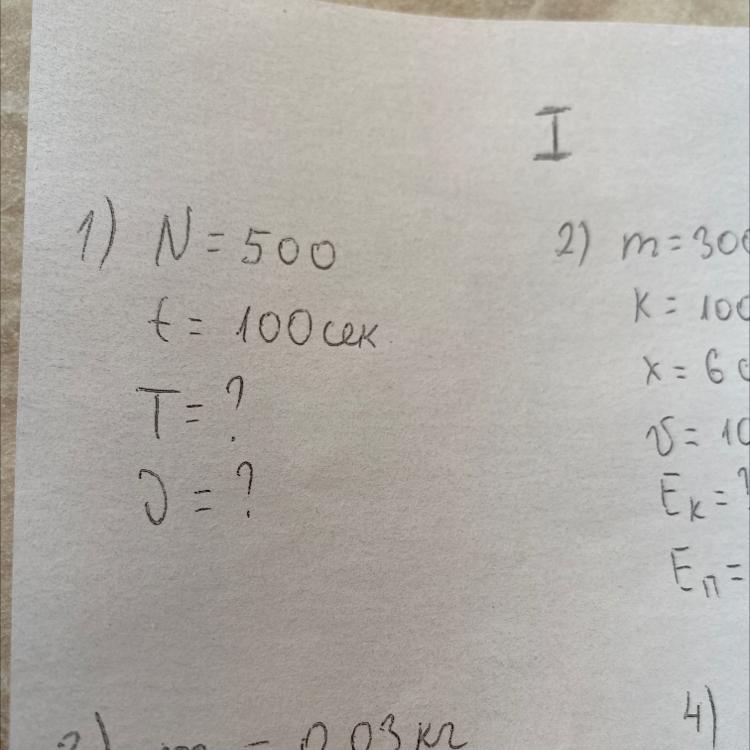 I
1) N = 500
t = 100 сек
T = ?
ν = ?
2) m = 300
k = 100
x = 6 с
v = 10
Eк = ?
Eп =
3) m = 0,03 кг
4)